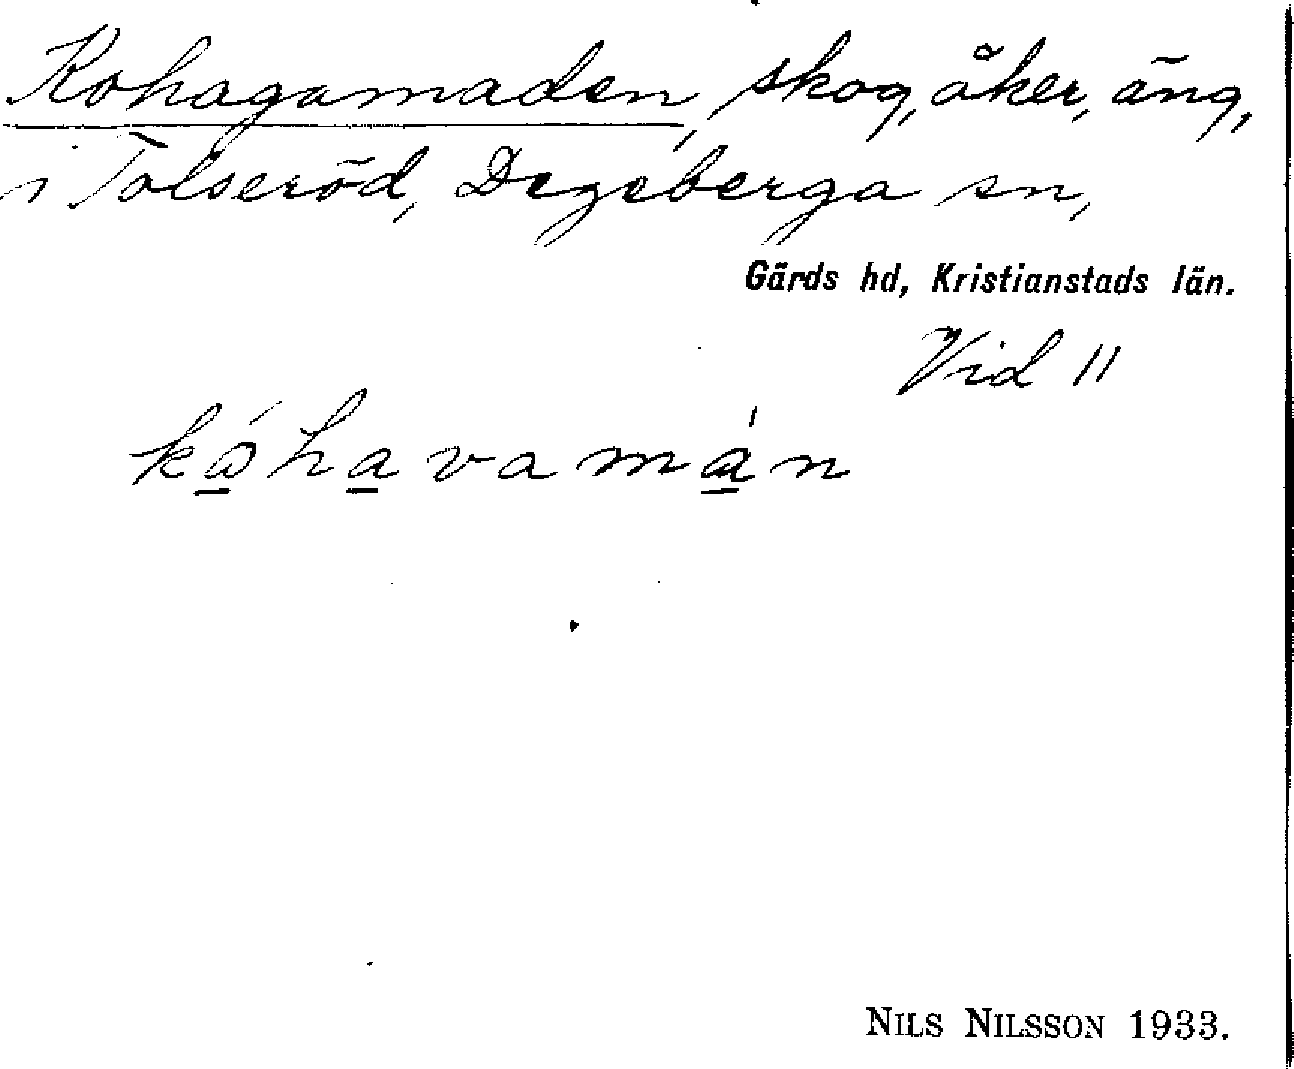 Kohagamaden, skog, åker, äng,
i Tolseröd, Degeberga sn,
Gärds hd, Kristianstads län.
Vid 11
ká̱ha̱vamá̱n
NILS NILSSON 1933.